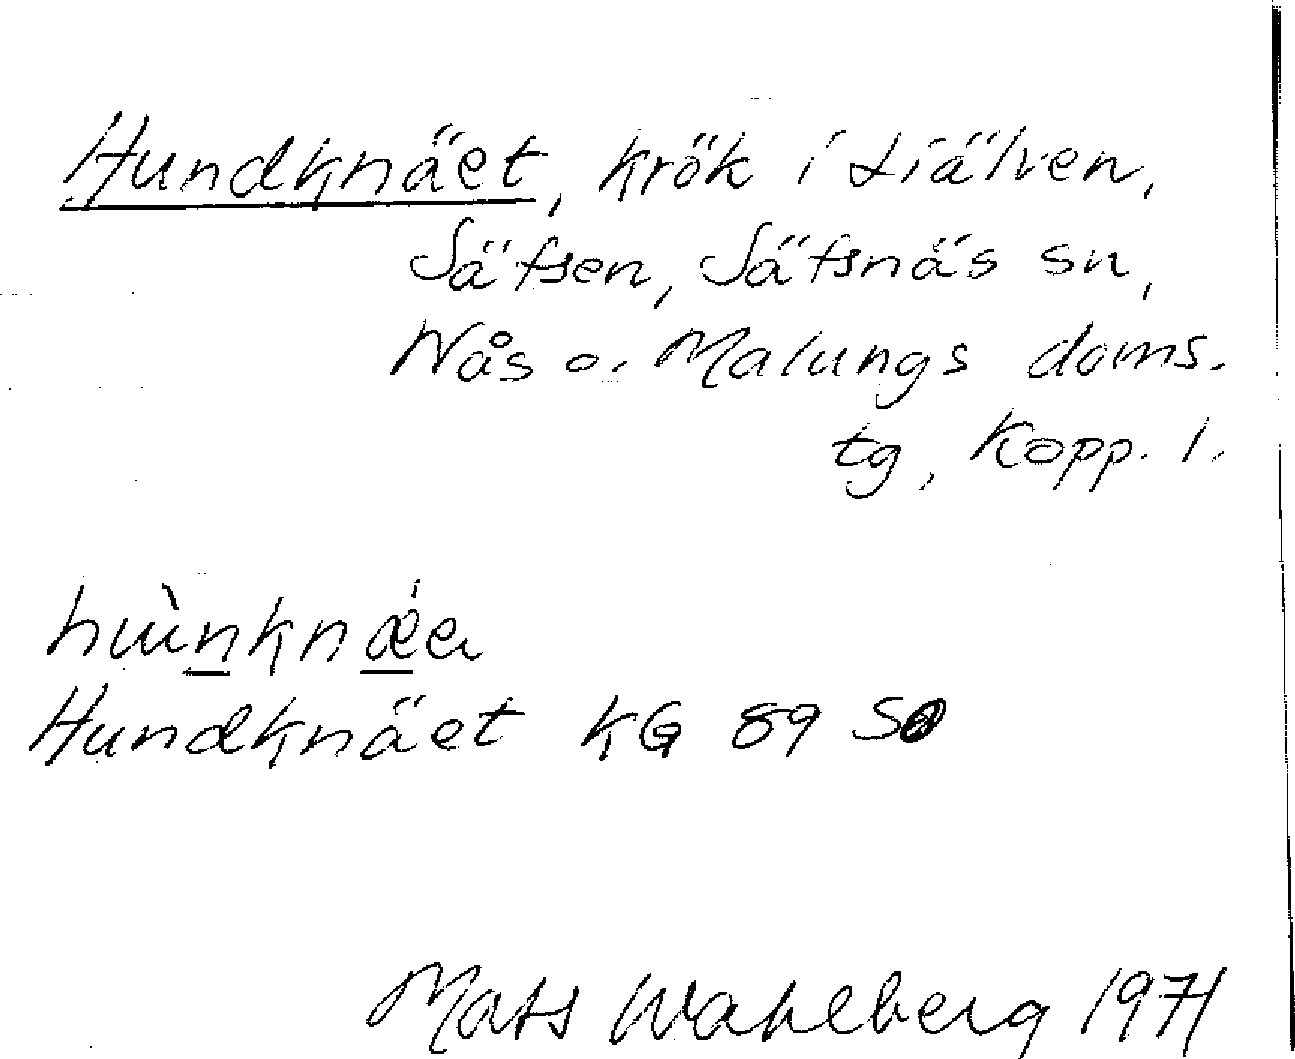 Hundknäet, krök i Liälven,
Säfsen, Säfsnäs sn,
Nås o. Malungs doms.
tg, Kopp. l.
Hundknäet KG 89 S
Mats Wahlberg 1971